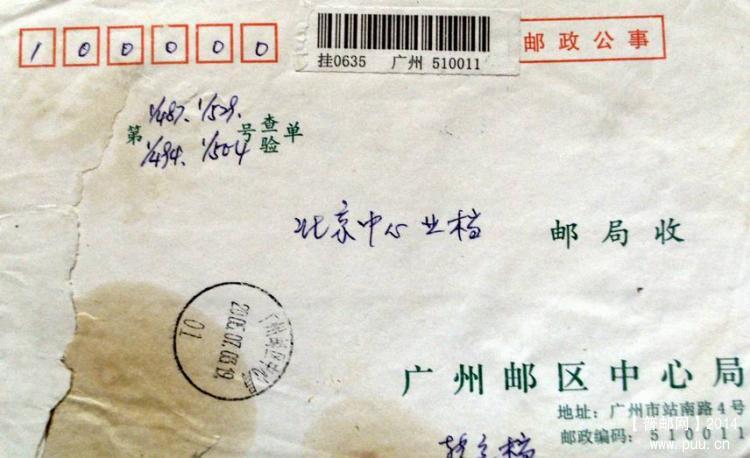 1 0 0 0 0 0
挂0635 广州 510011
邮政公事
1/487. 1/529.
第 号查验单
1/494. 1/504
北京中心业档 邮局收
广州邮区中心
2005.07.03.19
01
广州邮区中心局
地址：广州市站南路4号
邮政编码：510011
【箐邮网】2014
www.puu.cn